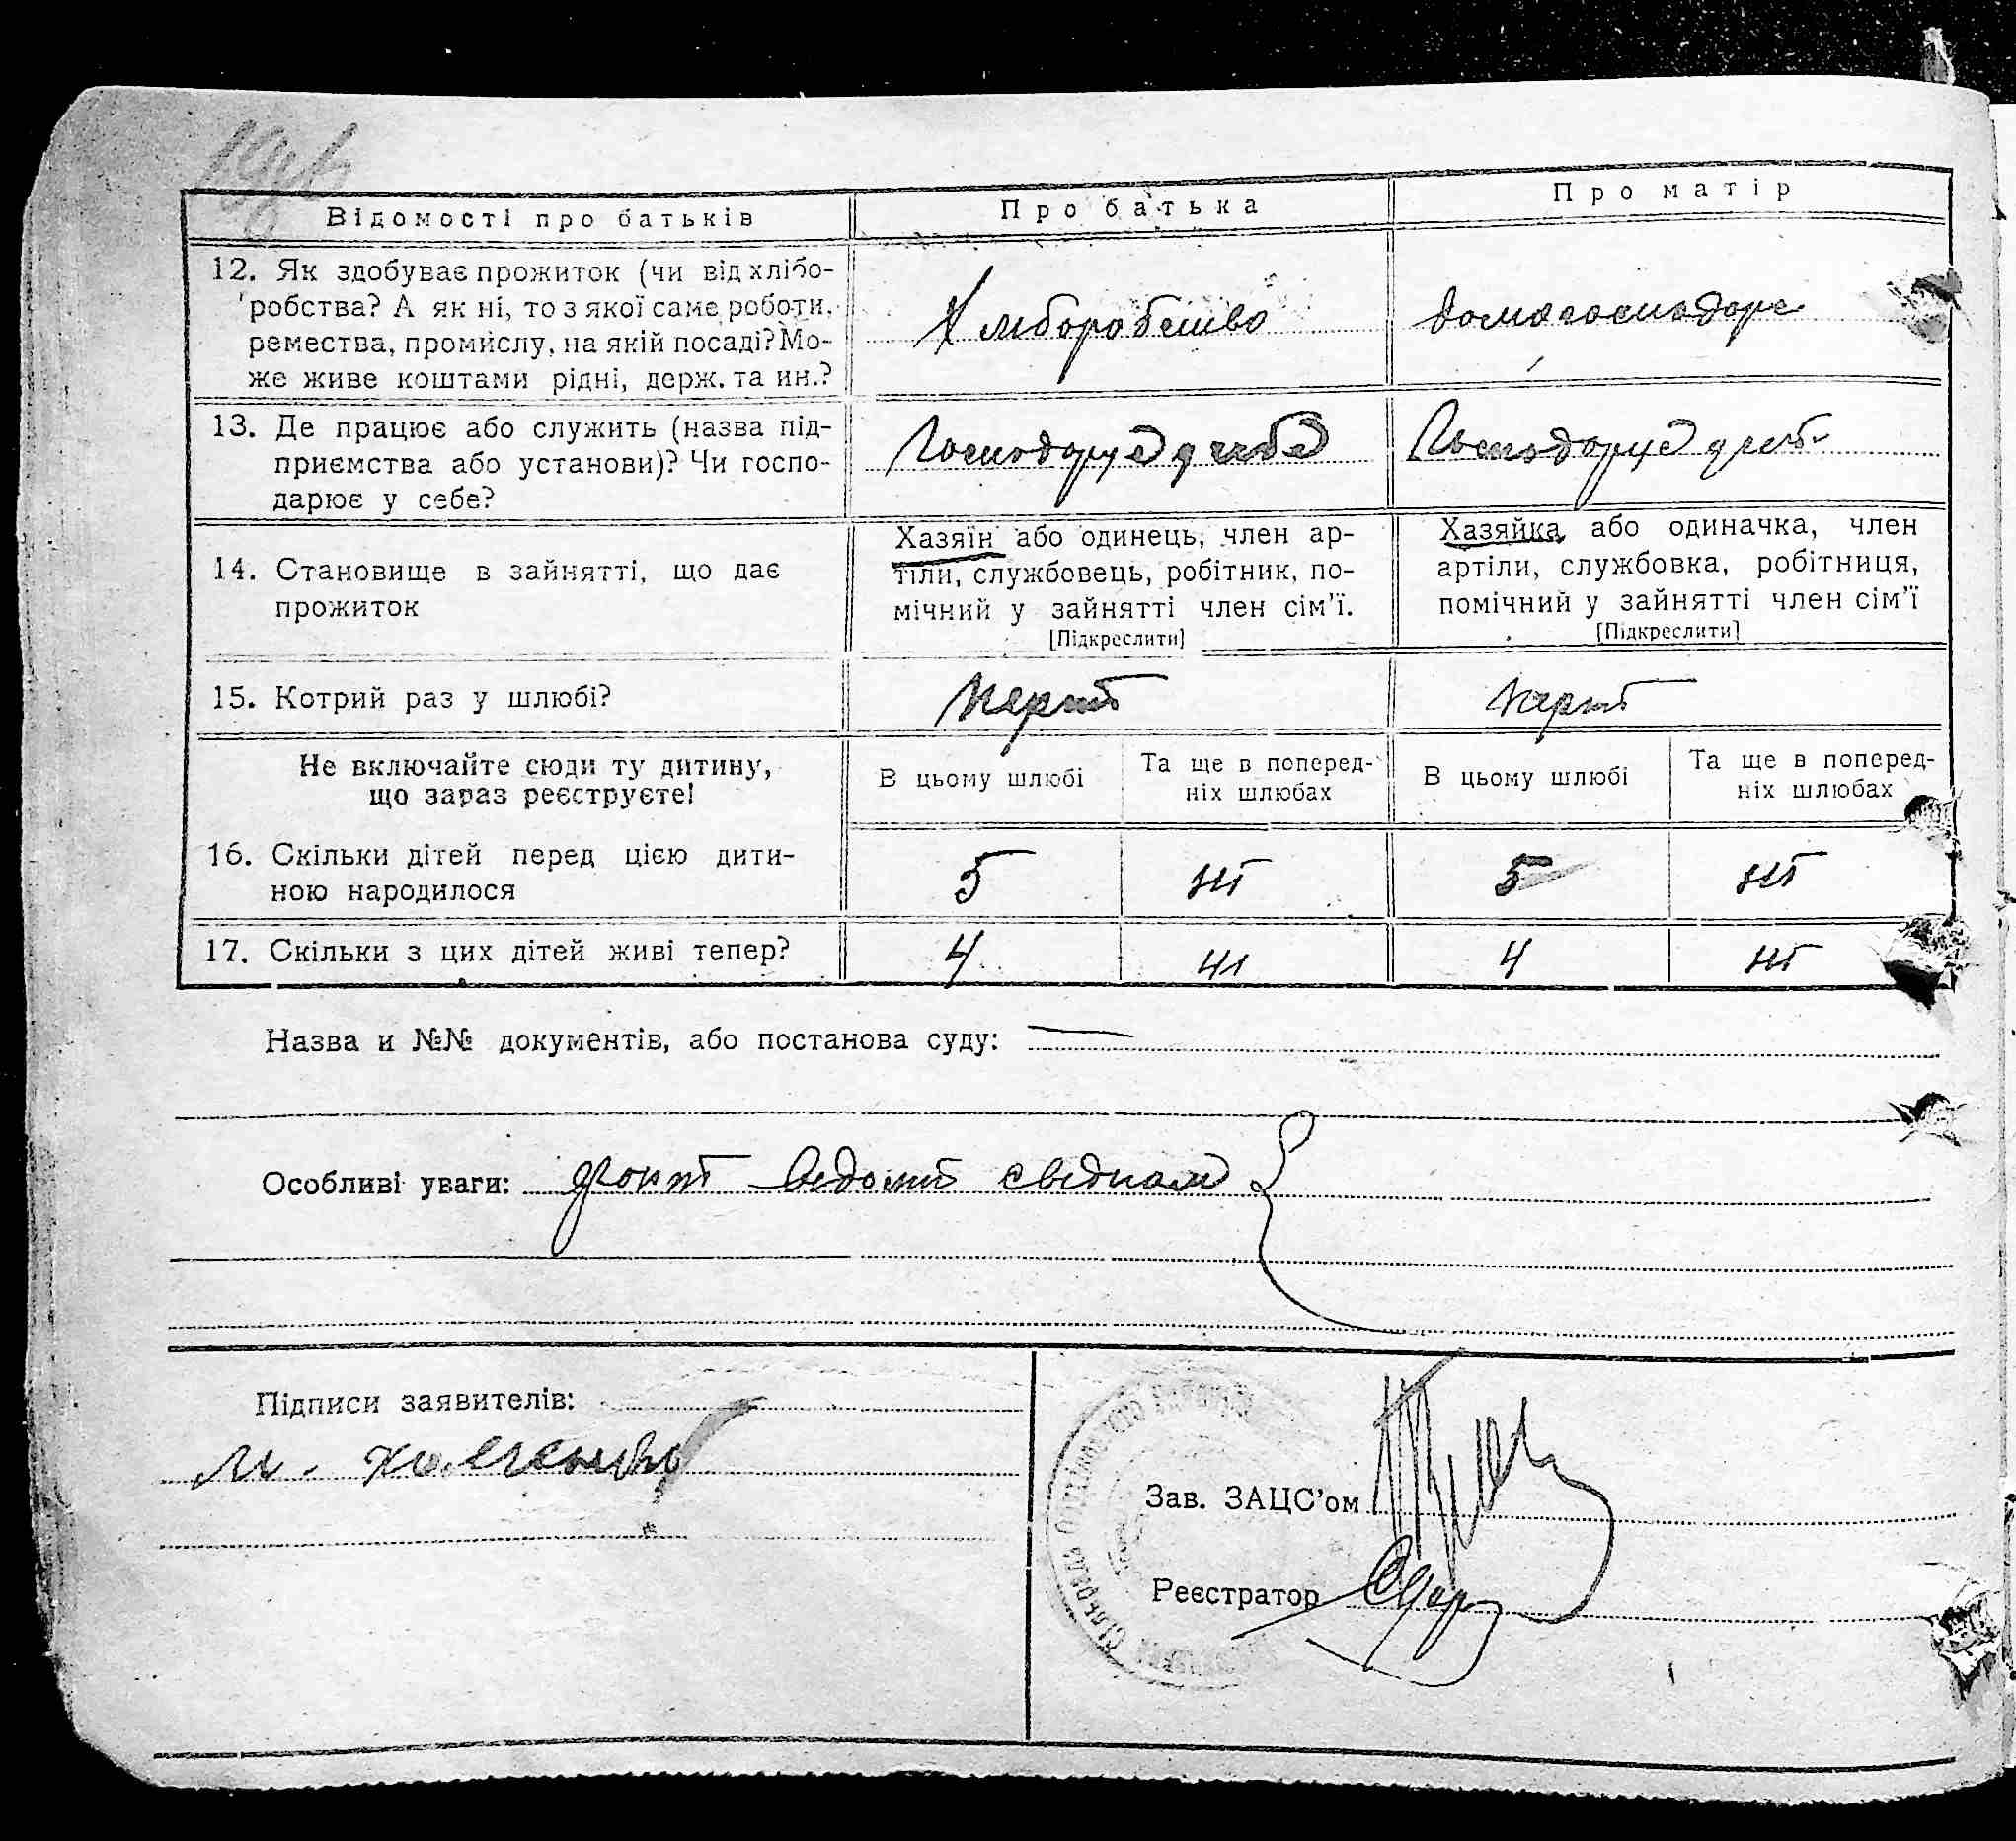 Відомості про батьків
Про батька
Про матір
12. Як здобуває прожиток (чи від хлібо-
робства? А як ні, то з якої саме роботи,
ремества, промислу, на якій посаді? Мо-
же живе коштами рідні, держ. та ин.?
Хліборобство
домогосподарс
13. Де працює або служить (назва під-
приємства або установи)? Чи госпо-
дарює у себе?
Господарує у себе
Господарує у себ
14. Становище в зайнятті, що дає
прожиток
Хазяїн або одинець, член ар-
тіли, службовець, робітник, по-
мічний у зайнятті член сім'ї.
[Підкреслити]
Хазяйка або одиначка, член
артіли, службовка, робітниця,
помічний у зайнятті член сім'ї
[Підкреслити]
15. Котрий раз у шлюбі?
перший
перший
Не включайте сюди ту дитину,
що зараз реєструєте!
В цьому шлюбі
Та ще в поперед-
ніх шлюбах
В цьому шлюбі
Та ще в поперед-
ніх шлюбах
16. Скільки дітей перед цією дити-
ною народилося
5
ні
5
ні
17. Скільки з цих дітей живі тепер?
4
ні
4
ні
Назва и №№ документів, або постанова суду:
Особливі уваги:
Підписи заявителів:
М.
Зав. ЗАЦС'ом
Реєстратор